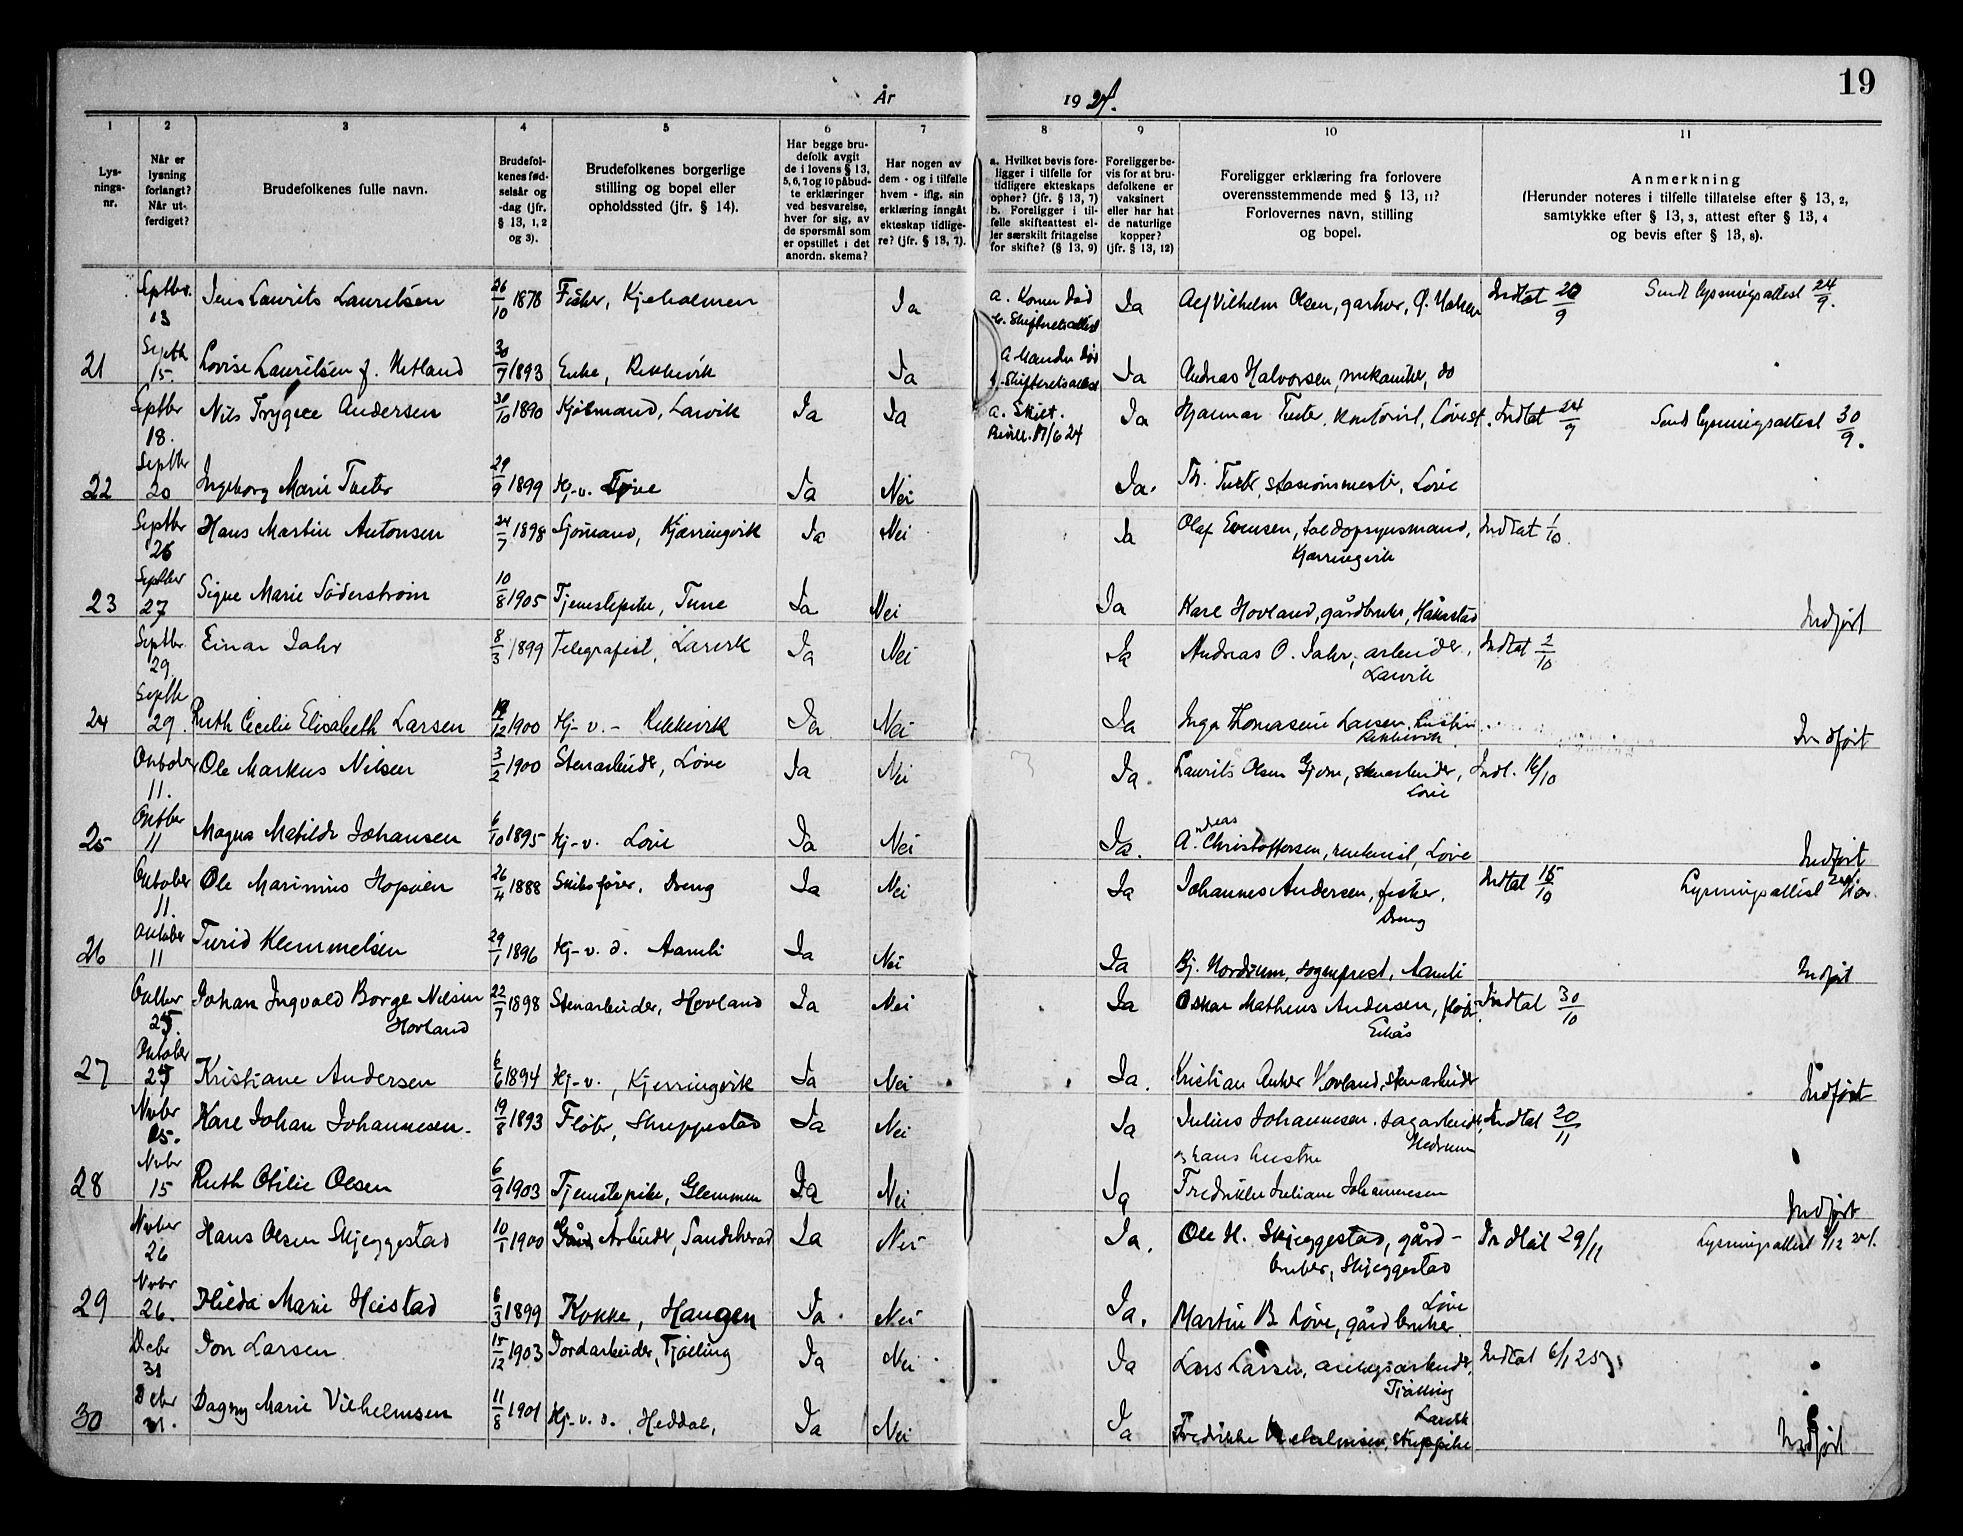 19
År 1924.
1 2 3 4 5 6 7 8 9 10 11
Lysningsnr.
Når er lysning forlangt? Når utferdiget?
Brudefolkenes fulle navn.
Brudefolkenes fødselsår og -dag (jfr. § 13, 1, 2 og 3).
Brudefolkenes borgerlige stilling og bopel eller opholdssted (jfr. § 14).
Har begge brudefolk avgit de i lovens § 13, 5, 6, 7 og 10 påbudte erklæringer ved besvarelse, hver for sig, av de spørsmål som er opstillet i det anordn. skema?
Har nogen av dem - og i tilfelle hvem - iflg. sin erklæring inngåt ekteskap tidligere? (jfr. § 13, 7).
a. Hvilket bevis foreligger i tilfelle for tidligere ekteskaps ophør? (jfr. § 13, 7) b. Foreligger i tilfelle skifteattest eller særskilt fritagelse for skifte? (§ 13, 9)
Foreligger bevis for at brudefolkene er vaksinert eller har hat de naturlige kopper? (jfr. § 13, 12)
Foreligger erklæring fra forlovere overensstemmende med § 13, 11? Forlovernes navn, stilling og bopel.
Anmerkning (Herunder noteres i tilfelle tillatelse efter § 13, 2, samtykke efter § 13, 3, attest efter § 13, 4 og bevis efter § 13, 8).
Septbr. 13 Jens Laurits Lauritsen 26/10 1878 Fisker, Kjeholmen Ja a. Konen død b. Skifteretsattest Ja Alf Vilhelm Olsen, Indtat 20/9 Sendt lysningsattest 24/9.
21 Septb 15. Lovise Lauritsen f. Hetland 30/7 1893 Enke, Rekkevik Ja a Manden død b. Skifteretsattest Ja Andreas Halvorsen, mekaniker, do
Septbr 18. Nils Trygve Andersen 30/10 1890 Kjøbmand, Larvik Ja Ja a. Skilt. Bevill. 17/6 24 Ja Hjalmar Tveter, kontorist, Løvest. Indtat 24/9 Sendt lysningsattest 30/9.
22 Septbr 20 Ingeborg Marie Tveter 29/9 1899 Hj-v. Løve Ja Nei Ja. Th. Tveter, stasionmester, Løve
Septbr 26 Hans Martin Antonsen 24/7 1898 Sjømand, Kjærringvik Ja Nei Ja Olaf Evensen, toldopsynsmand, Kjærringvik Indtat 1/10.
23 Septbr 27 Signe Marie Søderstrøm 10/8 1905 Tjenestepike, Tune Ja Nei Ja Karl Hovland, gårdbruker, Håkestad Indført
Septbr. 29 Einar Jahr 8/3 1899 Telegrafist, Larvik Ja Nei Ja Andreas O. Jahr, arbeider, Larvik Indtat 2/10
24 Septb 29. Ruth Cecilie Elisabeth Larsen 19/12 1900 Hj-v. - Rekkevik Ja Nei Ja Inga Thomasine Larsen, Rekkevik Indført
Oktober 11. Ole Markus Nilsen 3/2 1900 Stenarbeider, Løve Ja Nei Ja. Laurits Olsen Gjerse, stenarbeider, Løve Indt. 16/10
25 Oktber 11 Magna Matilde Johansen 6/10 1895 Hj-v. Løve Ja Nei Ja. Andreas Christoffersen, Løve Indført
Oktober 11. Ole Marinius Hopsien 26/4 1888 Skibsfører, Breng Ja Nei Ja Johannes Andersen, fisker, Breng Indtat 15/10 Lysningsattest
26 Oktober 11 Turid Klemmetsen 29/1 1896 Hj-v. d. Aamli Ja Nei Ja Bj. Nordrum, sogneprest, Aamli Indført
Oktber 25. Johan Ingvald Borge Nilsen Hovland 22/7 1898 Stenarbeider, Hovland Ja Nei Ja Oskar Matheus Andersen, fløter, Ekås Indtat 30/10
27 Oktober 25 Kristiane Andersen 6/6 1894 Hj-v., Kjerringvik Ja Nei Ja. Kristian Anker Hovland, stenarbeider Indført
Novbr 15. Karl Johan Johannesen 19/8 1893 Fløter, Skreppestad Ja Nei Ja Julius Johannesen, sagarbeider, Hedrum Indtat 20/11
og hans hustru
28 Novbr 15 Ruth Otilie Olsen 6/9 1903 Tjenestepike, Glemmen Ja Nei Ja Fredrikke Juliane Johannesen Indført
Novber 26 Hans Olsen Skjeggestad 10/1 1900 Arbeider, Sandeherad Ja Nei Ja. Ole H. Skjeggestad, gårdbruker, Skjeggestad Indtat 29/11 Lysningsattest
29 Novbr 26. Hilda Marie Heistad 6/3 1899 Kokke, Haugen Ja. Nei Ja. Martin B. Løve, gårdbruker, Løve
Debr 31 Jon Larsen 15/12 1903 Jordarbeider, Tjølling Ja Nei Ja Lars Larsen, anlegsarbeider, Tjølling Indtat 6/1 25
30 Debr 31. Dagny Marie Vilhelmsen 11/8 1901 Hj-v. d., Heddal, Ja Nei Ja Fredrikke Vilhelmsen, Larvik Indført